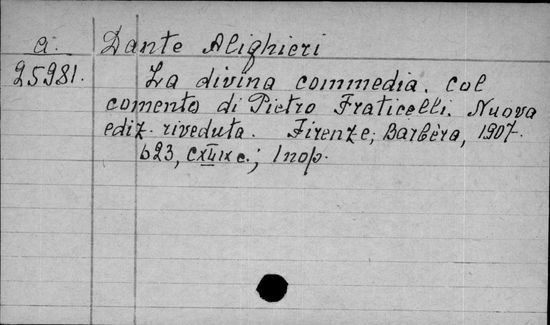 a. Dante Alighieri
25981. La divina commedia. col
comento di Pietro Fraticelli. Nuova
ediz. riveduta. Firenze, Barbèra, 1907.
623, c.; 1 нор.